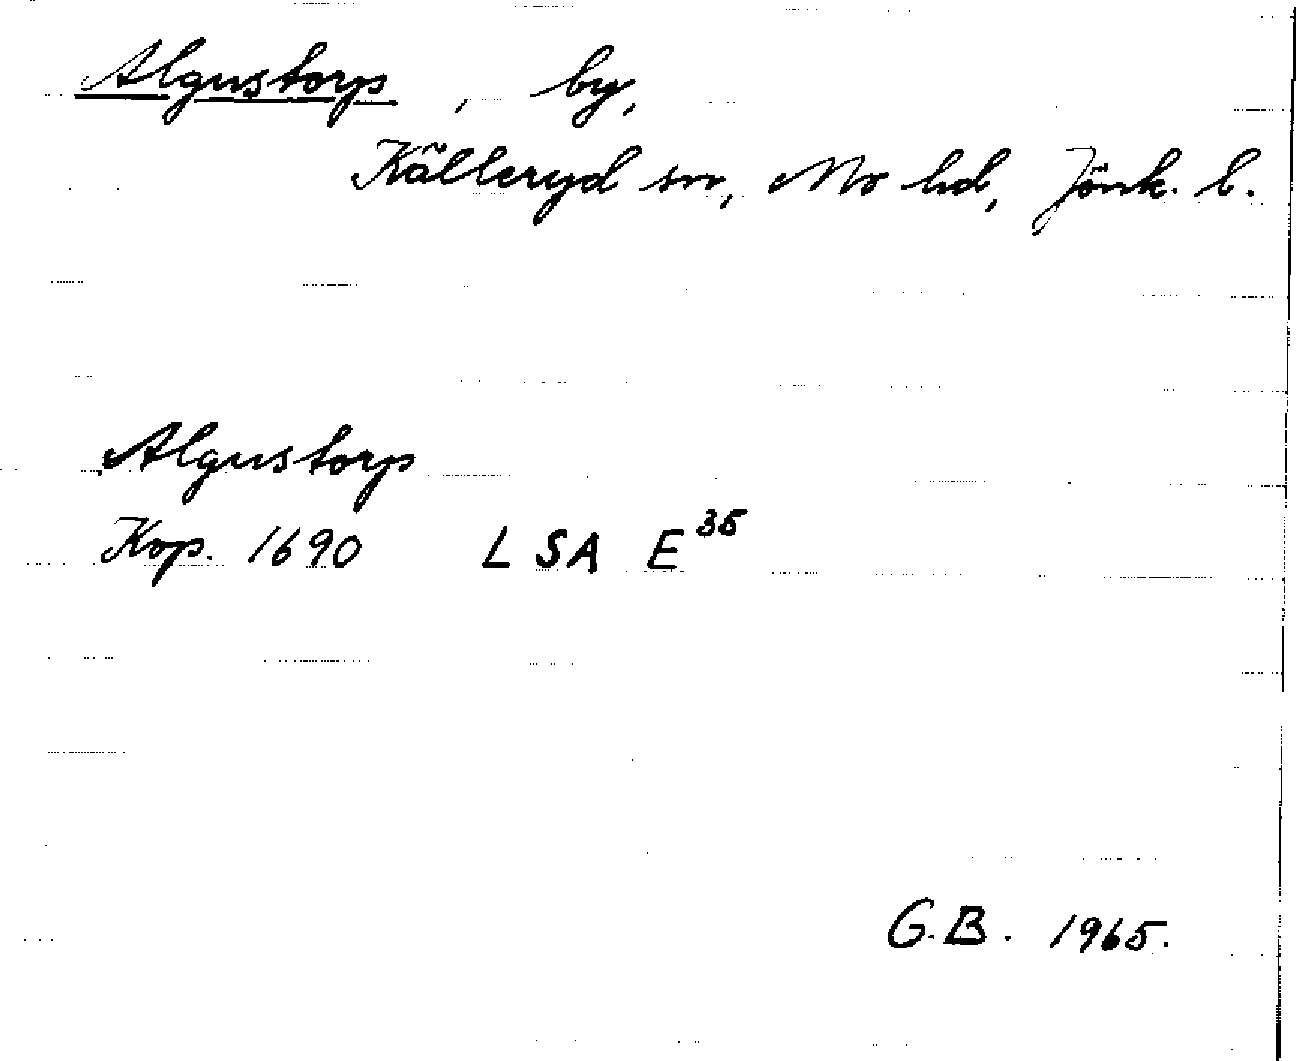 Algustorp, by,
Källeryd sn, Mo hd, Jönk. l.
Algustorp
Kop. 1690 LSA E 35
G.B. 1965.